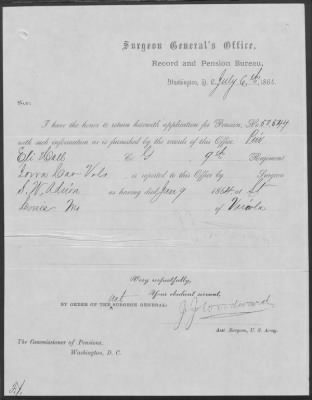 Surgeon General's Office,
Record and Pension Bureau,
Washington, D. C. July 6th, 1864.
Sir:
I have the honor to return herewith application for Pension, No 52544
with such information as is furnished by the records of this Office.
Eli Hall Co G 9th Regiment
Iowa Vols, is reported to this Office by Surgeon
S. W. as having died Jany 9 1864, at St
Louis Mo of Variola
Very respectfully,
Your obedient servant,
BY ORDER OF THE Act SURGEON GENERAL:
J J Woodward
Asst Surgeon, U. S. Army.
The Commissioner of Pensions,
Washington, D. C.